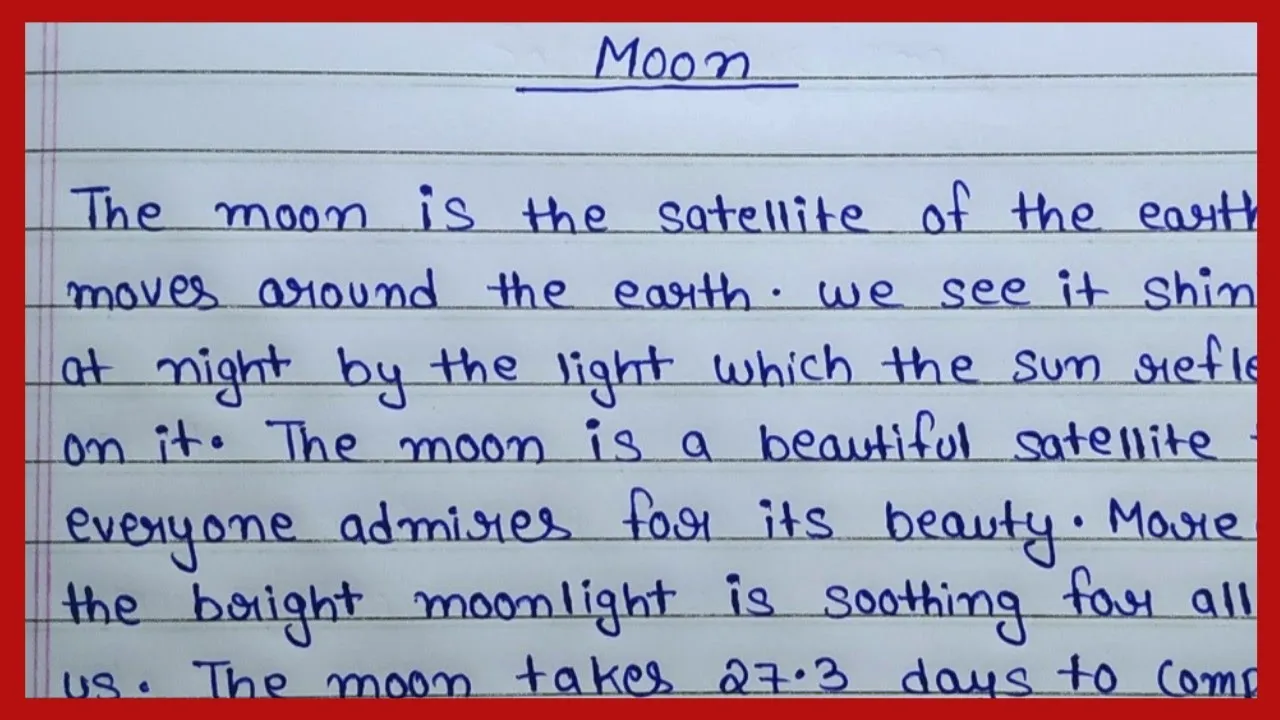 Moon
The moon is the satellite of the earth
moves around the earth. we see it shin
at night by the light which the sun refle
on it. The moon is a beautiful satellite t
everyone admires for its beauty. More
the bright moonlight is soothing for all
us. The moon takes 27.3 days to comp